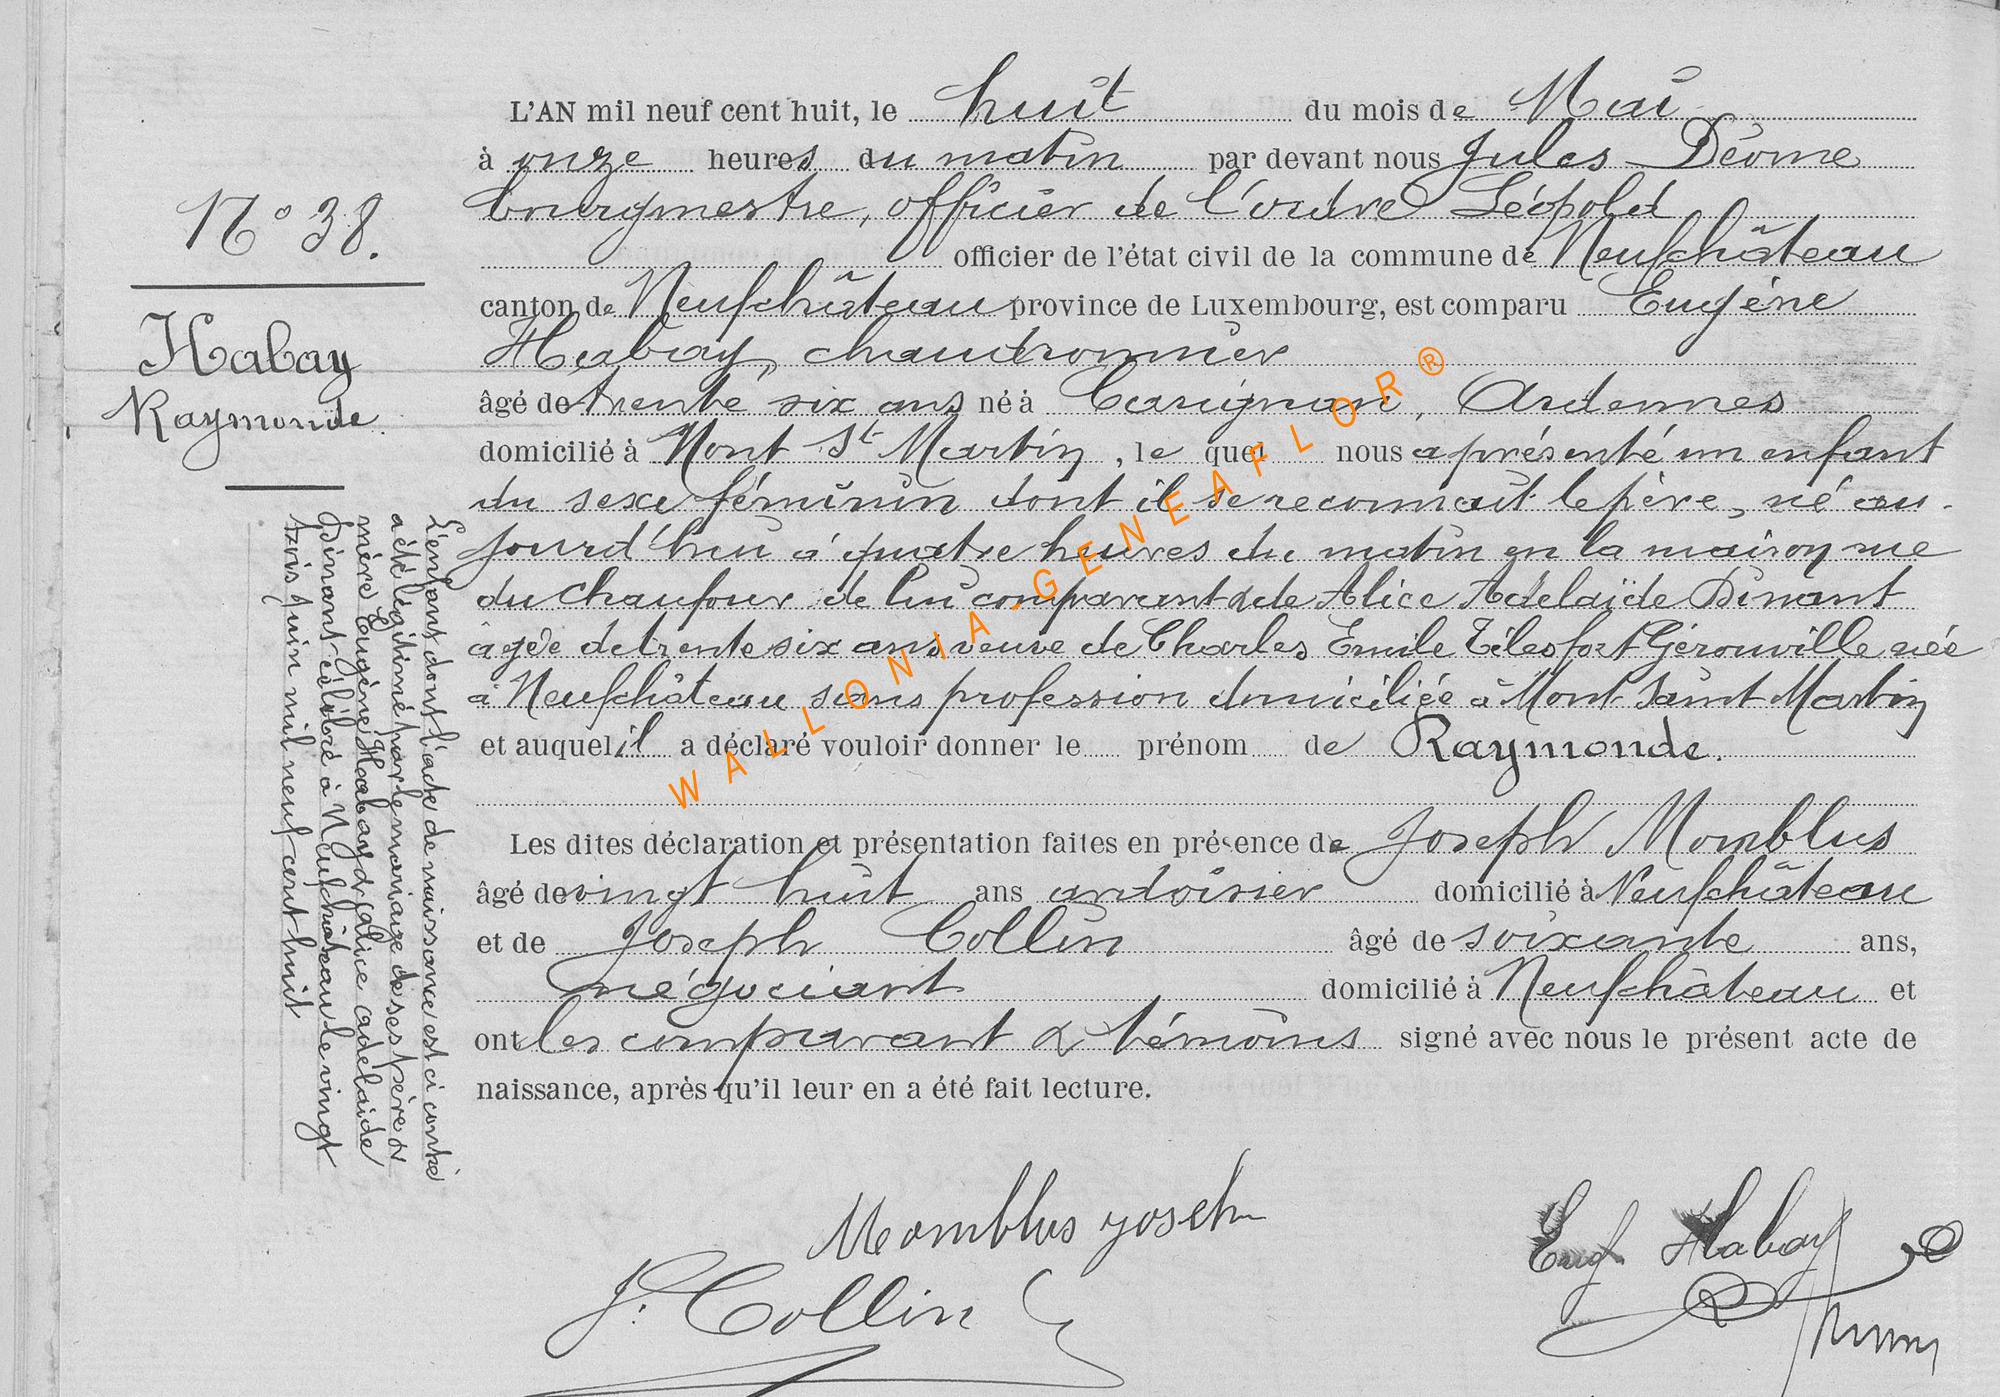 L'AN mil neuf cent huit, le huit du mois de Mai
à onze heures du matin par devant nous Jules Déome
bourgmestre, officier de l'ordre Léopold
officier de l'état civil de la commune de Neufchâteau
canton de Neufchâteau province de Luxembourg, est comparu Eugène
Habay, chaudronnier
âgé de trente six ans né à Carignan, Ardennes
domicilié à Mont St Martin, le quel nous a présenté un enfant
du sexe féminin dont il se reconnait le père, né au-
jourd'hui à quatre heures du matin en la maison rue
du Chaufour de lui comparant & de Alice Adelaïde Dinant
âgée de trente six ans veuve de Charles Emile Télesfort Gérouville née
à Neufchâteau sans profession domiciliée à Mont Saint Martin
et auquel il a déclaré vouloir donner le prénom de Raymonde.
Les dites déclaration et présentation faites en présence de Joseph Momblus
âgé de vingt huit ans ardoisier domicilié à Neufchâteau
et de Joseph Collin âgé de soixante ans,
négociant domicilié à Neufchâteau et
ont les comparant & témoins signé avec nous le présent acte de
naissance, après qu'il leur en a été fait lecture.
N° 38.
Habay
Raymonde
L'enfant dont l'acte de naissance est ci contre
a été légitimé par le mariage de ses père &
mère Eugène Habay & Alice Adelaïde
Dinant célébré à Neufchâteau le vingt
trois juin mil neuf cent huit
Momblus Joseh
J. Collin
Eug Habay
WALLONIA-GENEAFLOR®